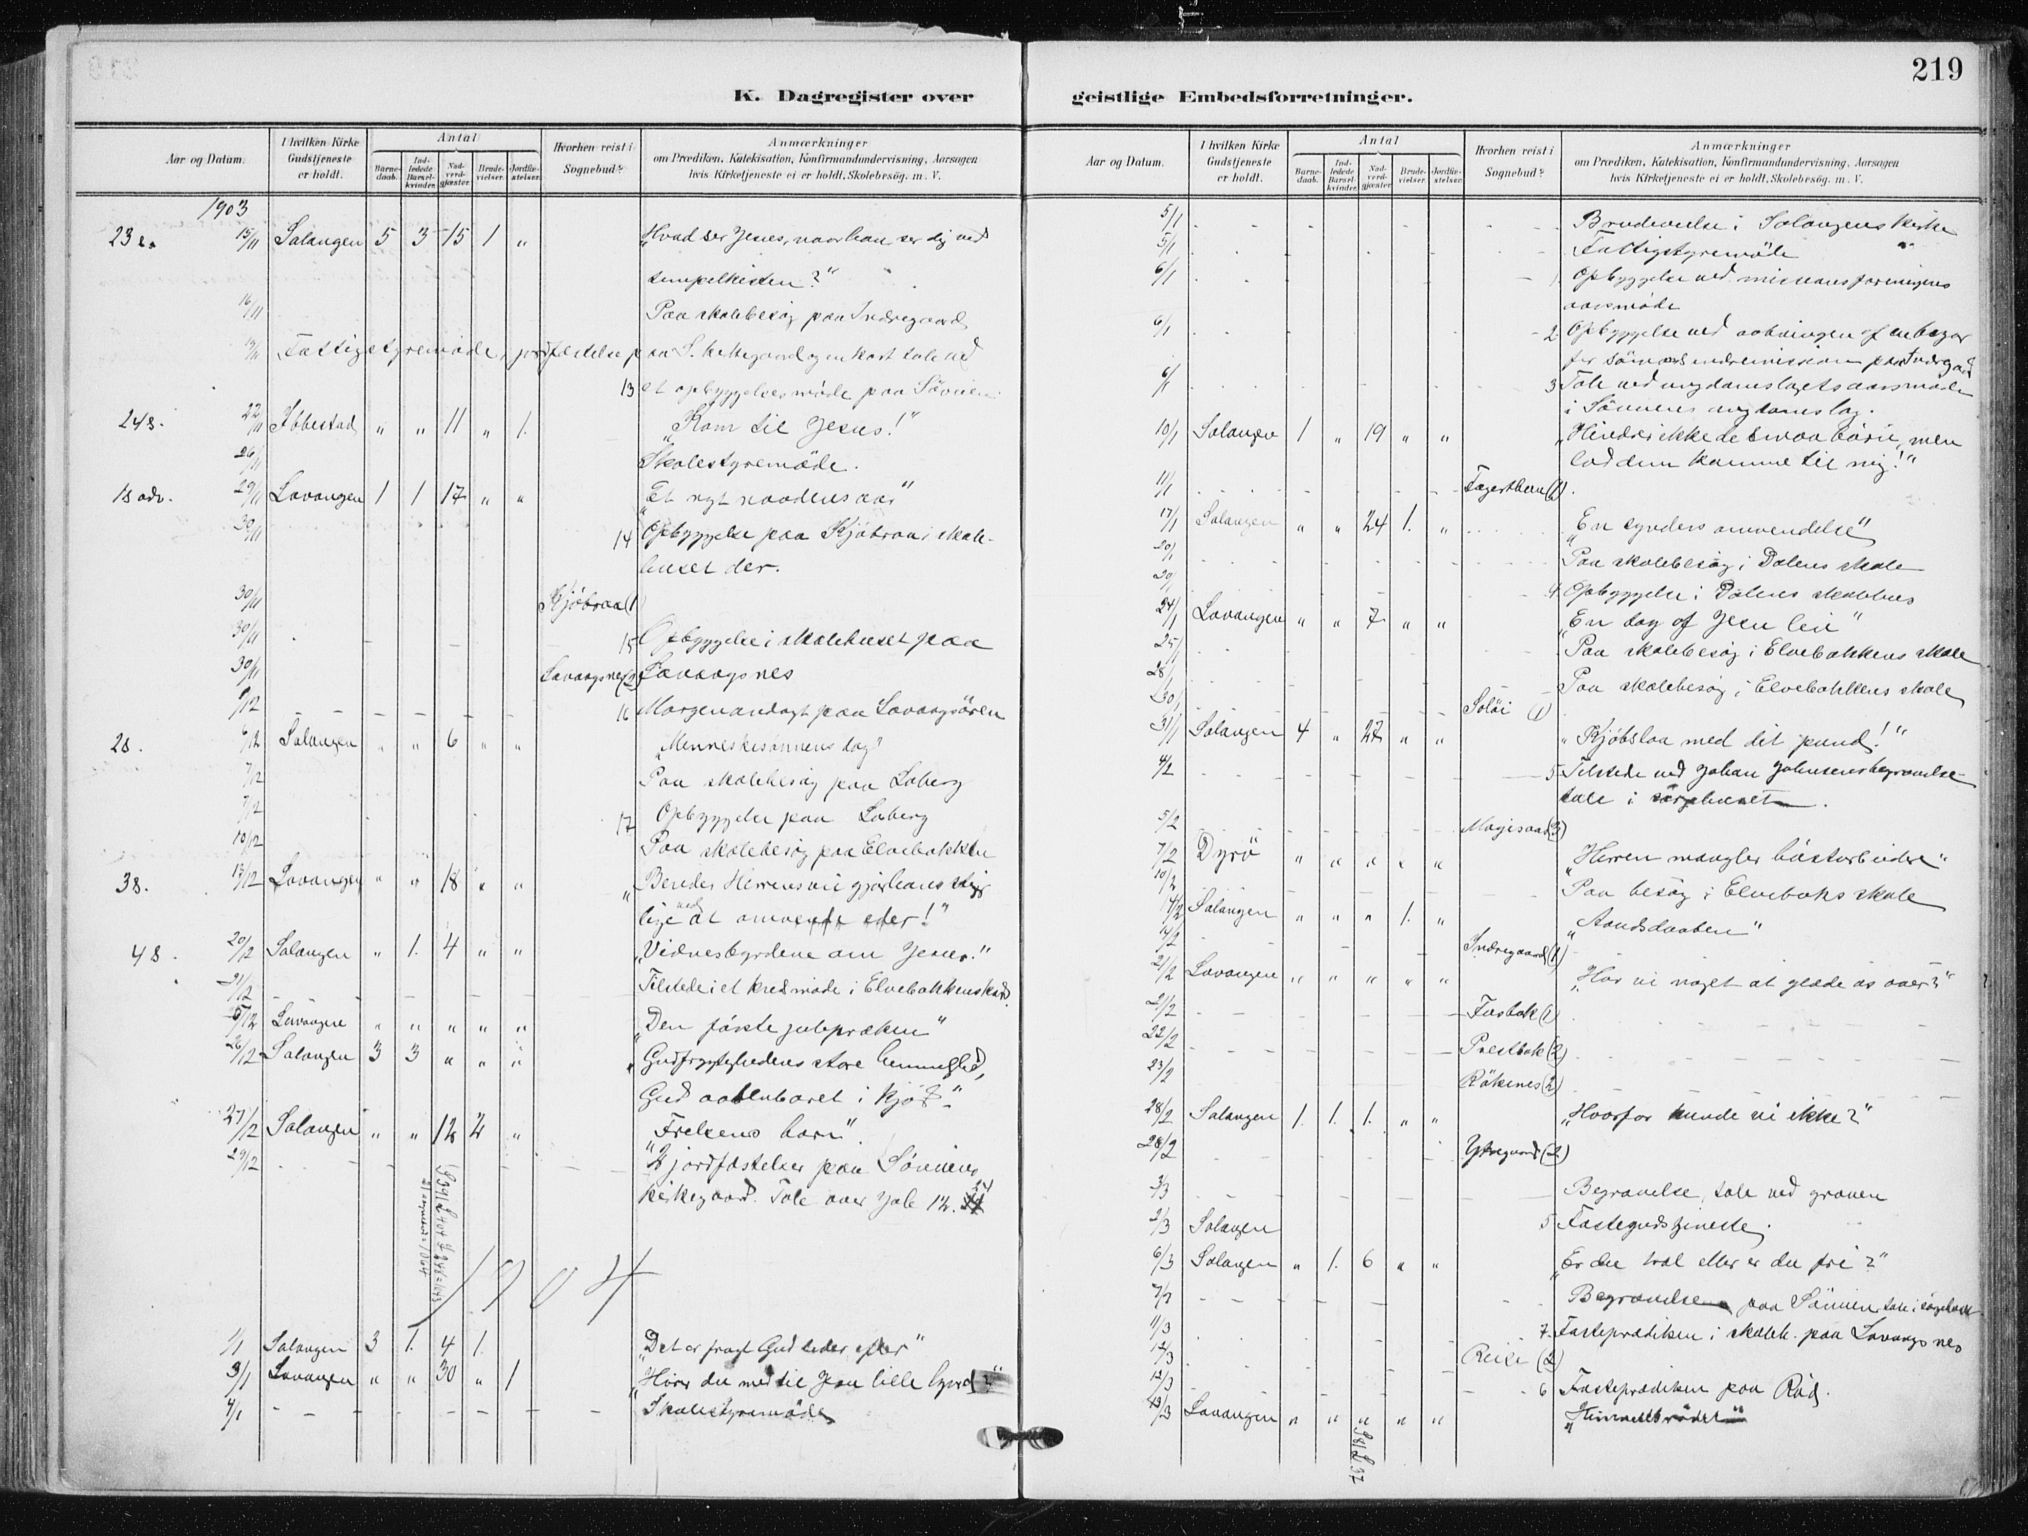 219
K. Dagregister over geistlige Embedsforretninger.
Aar og Datum. I hvilken Kirke Gudstjeneste er holdt. Antal Barnedaab. Indledede Barselkvinder. Nadverdgjæster. Brudevielser. Jordfæstelser. Hvorhen reist i Sognebud? Anmærkninger om Prædiken, Katekisation, Konfirmandundervisning, Aarsagen hvis Kirketjeneste ei er holdt, Skolebesøg. m. V.
1903
23 s. 15/11 Salangen 5 3 15 1 " "Hvad ser Jesus, naar han ser dig ved
tempelkisten?"
16/11 Paa skolebesøg paa Indregaard
Fattigstyremøde, jordfæstelse paa S. kirkegaard og en kort tale ved
13 et opbyggelsesmøde paa Søveien
24 s. 22/11 Ibbestad " " 11 " 1. "Kom til Jesus!"
26/11 Skolestyremøde.
1 s adv. 29/11 Lavangen 1 1 17 " " "Et nyt naadens aar"
30/11 14 Opbyggelse paa Kjøbraa i skole-
huset der.
30/11 Kjøbraa (1)
30/11 15 Opbyggelse i skolehuset paa
30/11 Lavangsnes (2) Lavangsnes
16 Morgenandagt paa Lavangsøren
2 s. 6/12 Salangen " " 6 " " "Menneskesønnens dag"
7/12 Paa skolebesøg paa Laberg
7/12 17 Opbyggelse paa Laberg
10/12 Paa skolebesøg paa Elvebakken
3 s. 13/12 Lavangen " " 18 " " "Bereder Herrens vei gjør hans stier
lige ved at omvende eder!"
4 s. 20/12 Salangen " 1. 4 " " "Vidnesbyrdene om Jesus."
21/12 Tilstede i et kredsmøde i Elvebakken
Lavangen " " " " " "Den første julepræken"
26/12 Salangen 3 3 " " " "Gudfrygtighedens store hemmelighed,
Gud aabenbaret i kjød"
27/12 Salangen " " 12 2 " "Frelsens barn".
29/12 2 jordfæstelser paa Søveiens
kirkegaard. Tale over Job 14.
1904
1/1 Salangen 3 1. 4 1. "Det er frugt Gud leder efter"
3/1 Lavangen " " 30 " 1 "Hører du med til Jesu lille hjord?"
4/1 Skolestyremøde
Aar og Datum. I hvilken Kirke Gudstjeneste er holdt. Antal Barnedaab. Indledede Barselkvinder. Nadverdgjæster. Brudevielser. Jordfæstelser. Hvorhen reist i Sognebud? Anmærkninger om Prædiken, Katekisation, Konfirmandundervisning, Aarsagen hvis Kirketjeneste ei er holdt, Skolebesøg. m. V.
5/1 Brudevielse i Salangens kirke
5/1 Fattigstyremøde "
6/1 1 Opbyggelse ved missionsforeningens
aarsmøde
6/1 2 Opbyggelse ved aabningen af en bazar
for sømandsindremission paa Indregaard
6/1 3 Tale ved ungdomslagets aarsmøde
i Søveiens ungdomslag.
10/1 Salangen 1 " 19 " " "Hindrer ikke de smaa børn, men
lad dem komme til mig!"
11/1
17/1 Salangen " " 24 1. " "En synders omvendelse"
20/1 Paa skolebesøg i Dalens skole
20/1 4 Opbyggelse i Dalens skolehus
24/1 Lavangen " " 7 " " "En dag af Jesu liv"
25/1 Paa skolebesøg i Elvebakkens skole
28/1 Paa skolebesøg i Elvebakkens skole
30/1 Soløi (1)
31/1 Salangen 4 " 27 " " "Kjøbslaa med dit pund!"
4/2 5 Tilstede ved Johan Johnsens begravelse
tale i sørgehuset.
5/2
7/2 Dyrø " " " " " "Herren mangler høstarbeidere"
10/2 Paa besøg i Elvebaks skole
14/2 Salangen " " " 1. " "Aandsdaaben"
14/2 Indregaard (1)
21/2 Lavangen " " " " " "Har vi noget at glæde os over?"
21/2 Fosbak (1)
22/2 Prestbak (2)
23/2 Røkenes (2)
28/2 Salangen 1. 1. 1. " " "Hvorfor kunde vi ikke?"
28/2 Ytregaard (2)
Begravelse, tale ved graven
2/3 Salangen 5 Fastegudstjeneste.
6/3 Salangen " 1. 6 " " "Er du træl eller er du fri?"
7/3 Begravelse paa Søveien tale i sørgehuset
11/3 7. Fasteprædiken i skoleh. paa Lavangsnes
12/3 (2)
12/3 6 Fasteprædiken paa Rød.
13/3 Lavangen " " " " " "Himmelbrødet"